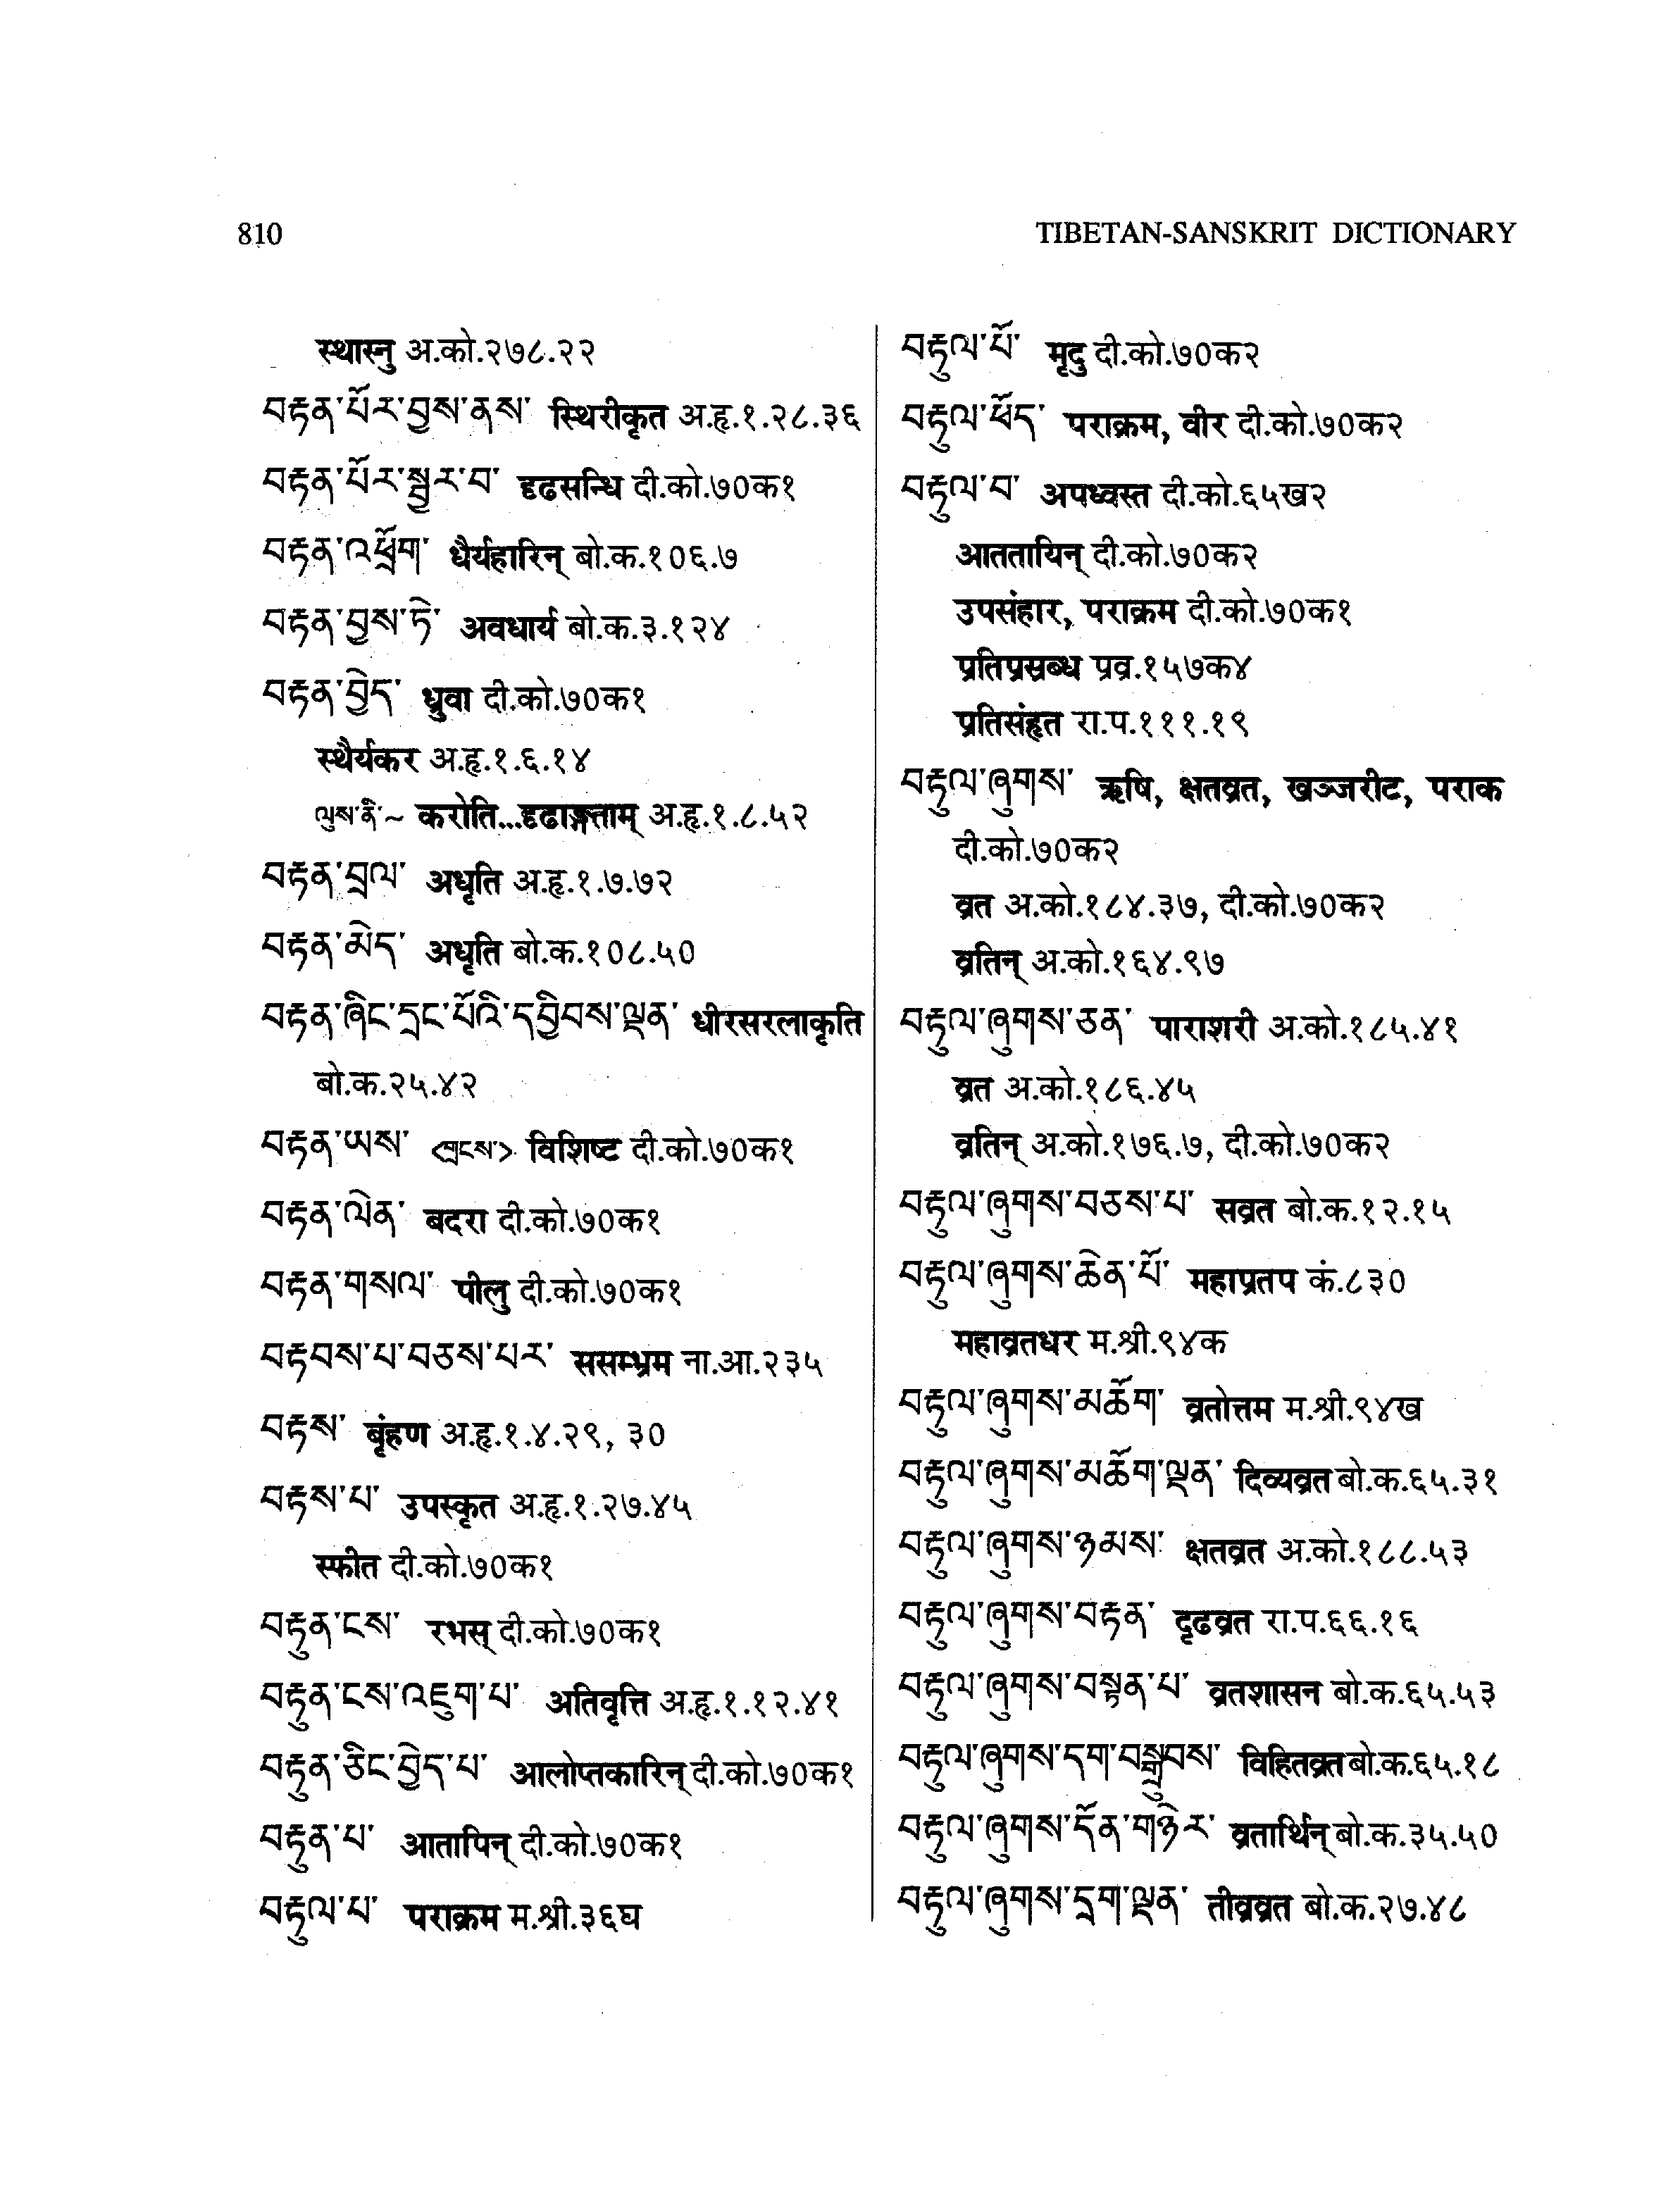 810
TIBETAN-SANSKRIT DICTIONARY
स्थास्नु अ.को.२७८.२२
བརྟན་པོར་བྱས་ནས་ स्थिरीकृत अ.हृ.१.२८.३६
བརྟན་པོར་སྦྱར་བ་ दृढसन्धि दी.को.७०क१
བརྟན་འཕྲོག་ धैर्यहारिन् बो.क.१०६.७
བརྟན་བྱས་ཏེ་ अवधार्य बो.क.३.१२४
བརྟན་བྱེད་ ध्रुवा दी.को.७०क१
स्थैर्यकर अ.हृ.१.६.१४
ལུས་ནི་~ करोति...दृढाङ्गताम् अ.हृ.१.८.५२
བརྟན་བྲལ་ अधृति अ.हृ.१.७.७२
བརྟན་མེད་ अधृति बो.क.१०८.५०
བརྟན་ཞིང་དྲང་པོའི་དབྱིབས་ལྡན་ धीरसरलाकृति
बो.क.२५.४२
བརྟན་ཡས་ <གྲངས་> विशिष्ट दी.को.७०क१
བརྟན་ལེན་ बदरा दी.को.७०क१
བརྟན་གསལ་ पीलु दी.को.७०क१
བརྟབས་པ་བཅས་པར་ ससम्भ्रम ना.आ.२३५
བརྟས་ बृंहण अ.हृ.१.४.२९, ३०
བརྟས་པ་ उपस्कृत अ.हृ.१.२७.४५
स्फीत दी.को.७०क१
བརྟུན་ངས་ रभस् दी.को.७०क१
བརྟུན་ངས་འཇུག་པ་ अतिवृत्ति अ.हृ.१.१२.४१
བརྟུན་ཅིང་བྱེད་པ་ आलोप्तकारिन् दी.को.७०क१
བརྟུན་པ་ आतापिन् दी.को.७०क१
བརྟུལ་པ་ पराक्रम म.श्री.३६घ
བརྟུལ་པོ་ मृदु दी.को.७०क२
བརྟུལ་ཕོད་ पराक्रम, वीर दी.को.७०क२
བརྟུལ་བ་ अपध्वस्त दी.को.६५ख२
आततायिन् दी.को.७०क२
उपसंहार, पराक्रम दी.को.७०क१
प्रतिप्रस्रब्ध प्रव्र.१५७क४
प्रतिसंहृत रा.प.१११.१९
བརྟུལ་ཞུགས་ ऋषि, क्षतव्रत, खञ्जरीट, पराक
दी.को.७०क२
व्रत अ.को.१८४.३७, दी.को.७०क२
व्रतिन् अ.को.१६४.९७
བརྟུལ་ཞུགས་ཅན་ पाराशरी अ.को.१८५.४१
व्रत अ.को.१८६.४५
व्रतिन् अ.को.१७६.७, दी.को.७०क२
བརྟུལ་ཞུགས་བཅས་པ་ सव्रत बो.क.१२.१५
བརྟུལ་ཞུགས་ཆེན་པོ་ महाप्रतप कं.८३०
महाव्रतधर म.श्री.९४क
བརྟུལ་ཞུགས་མཆོག་ व्रतोत्तम म.श्री.९४ख
བརྟུལ་ཞུགས་མཆོག་ལྡན་ दिव्यव्रत बो.क.६५.३१
བརྟུལ་ཞུགས་ཉམས་ क्षतव्रत अ.को.१८८.५३
བརྟུལ་ཞུགས་བརྟན་ दृढव्रत रा.प.६६.१६
བརྟུལ་ཞུགས་བསྟན་པ་ व्रतशासन बो.क.६५.५३
བརྟུལ་ཞུགས་དག་བསྒྲུབས་ विहितव्रत बो.क.६५.१८
བརྟུལ་ཞུགས་དོན་གཉེར་ व्रतार्थिन् बो.क.३५.५०
བརྟུལ་ཞུགས་དྲག་ལྡན་ तीव्रव्रत बो.क.२७.४८